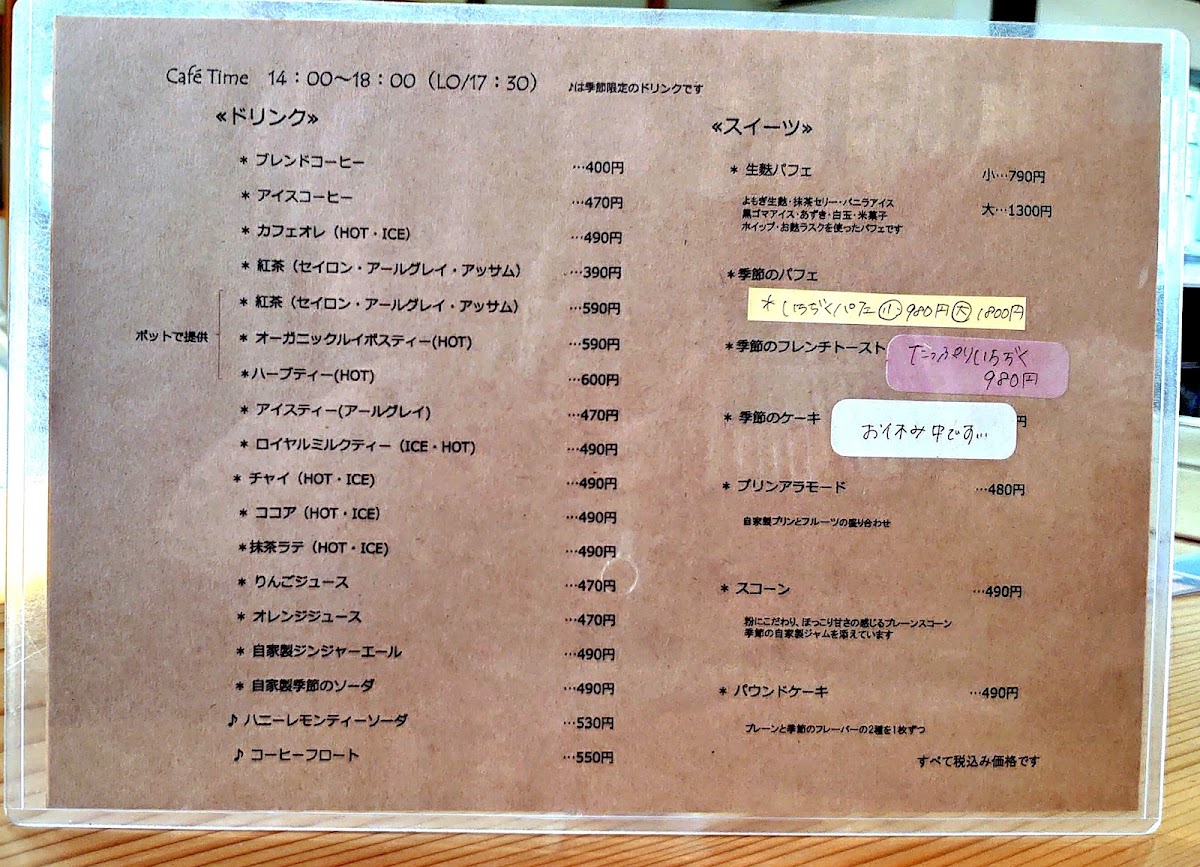 Café Time 14：00～18：00（LO/17：30） ♪は季節限定のドリンクです
≪ドリンク≫
＊ ブレンドコーヒー …400円
＊ アイスコーヒー …470円
＊ カフェオレ（HOT・ICE） …490円
＊ 紅茶（セイロン・アールグレイ・アッサム） …390円
＊ 紅茶（セイロン・アールグレイ・アッサム） …590円
ポットで提供
＊ オーガニックルイボスティー(HOT) …590円
＊ハーブティー(HOT) …600円
＊ アイスティー(アールグレイ) …470円
＊ ロイヤルミルクティー（ICE・HOT） …490円
＊ チャイ（HOT・ICE） …490円
＊ ココア（HOT・ICE） …490円
＊抹茶ラテ（HOT・ICE） …490円
＊ りんごジュース …470円
＊ オレンジジュース …470円
＊ 自家製ジンジャーエール …490円
＊ 自家製季節のソーダ …490円
♪ ハニーレモンティーソーダ …530円
♪ コーヒーフロート …550円
≪スイーツ≫
＊ 生麩パフェ 小…790円
大…1300円
よもぎ生麩・抹茶ゼリー・バニラアイス
黒ゴマアイス・あずき・白玉・米菓子
ホイップ・お麩ラスクを使ったパフェです
＊季節のパフェ
＊いちぢくパフェ 小 980円 大 1800円
＊季節のフレンチトースト
たっぷりいちぢく
980円
＊ 季節のケーキ 円
お休み中です…
＊ プリンアラモード …480円
自家製プリンとフルーツの盛り合わせ
＊ スコーン …490円
粉にこだわり、ほっこり甘さの感じるプレーンスコーン
季節の自家製ジャムを添えています
＊ パウンドケーキ …490円
プレーンと季節のフレーバーの2種を1枚ずつ
すべて税込み価格です